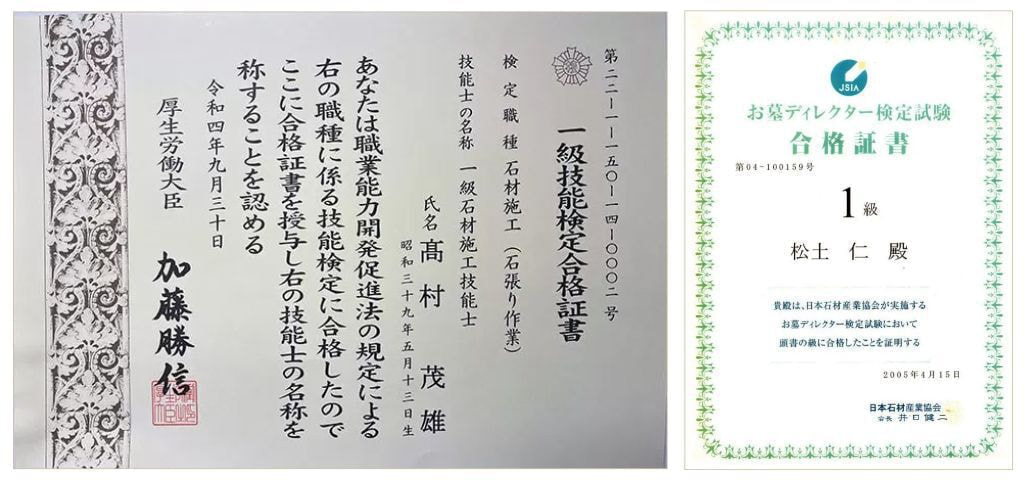 第二二－一－一五〇－一四－〇〇〇二号
一級技能検定合格証書
検定職種 石材施工(石張り作業)
技能士の名称 一級石材施工技能士
氏名 髙村 茂雄
昭和三十九年五月十三日生
あなたは職業能力開発促進法の規定による
右の職種に係る技能検定に合格したので
ここに合格証書を授与し右の技能士の名称を
称することを認める
令和四年九月三十日
厚生労働大臣 加藤勝信
JSIA
お墓ディレクター検定試験
合格証書
第04-100159号
1級
松土 仁 殿
貴殿は、日本石材産業協会が実施する
お墓ディレクター検定試験において
頭書の級に合格したことを証明する
2005年4月15日
日本石材産業協会
会長 井口健二